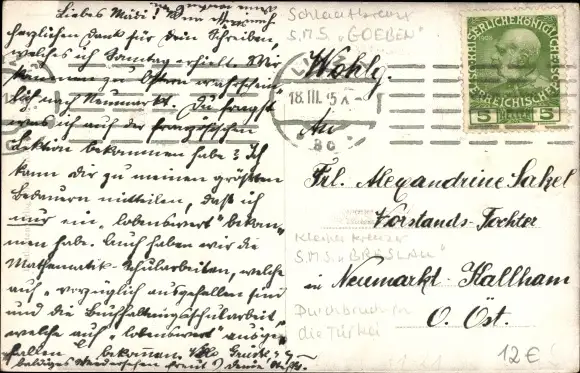 Liebes Mädi! Vor
herzlichen Dank für Dein Schreiben,
welches ich Sonntag erhielt. Wir
kommen zu Ostern wahrschein-
lich nach Neumarkt. Du fragst
was ich auf der französischen
Lektion bekommen habe? Ich
kann Dir zu meinen größten
Bedauern mitteilen, daß ich
nur ein „lobenswert" bekom-
men habe. Auch haben wir die
Mathematik-Schularbeiten, welche
auf „vorzüglich ausgefallen sind
und die Buchhaltungsschularbeit
welche auf „lobenswert" ausge-
fallen ist, bekommen. Grüße
baldiges Wiedersehen freut sich deine
Schlachtkreuzer
S.M.S. „GOEBEN"
KAISERLICHE KÖNIGLICHE
ÖSTERREICHISCHE POST
5 5
LINZ
18.III.15 X
8c
Wohlg.
An
Frl. Alexandrine Sakel
Vorstands-Tochter
Kleiner Kreuzer
S.M.S. „BRESLAU"
in Neumarkt-Kallham
Durchbruch in
die Türkei
O. Öst.
12€